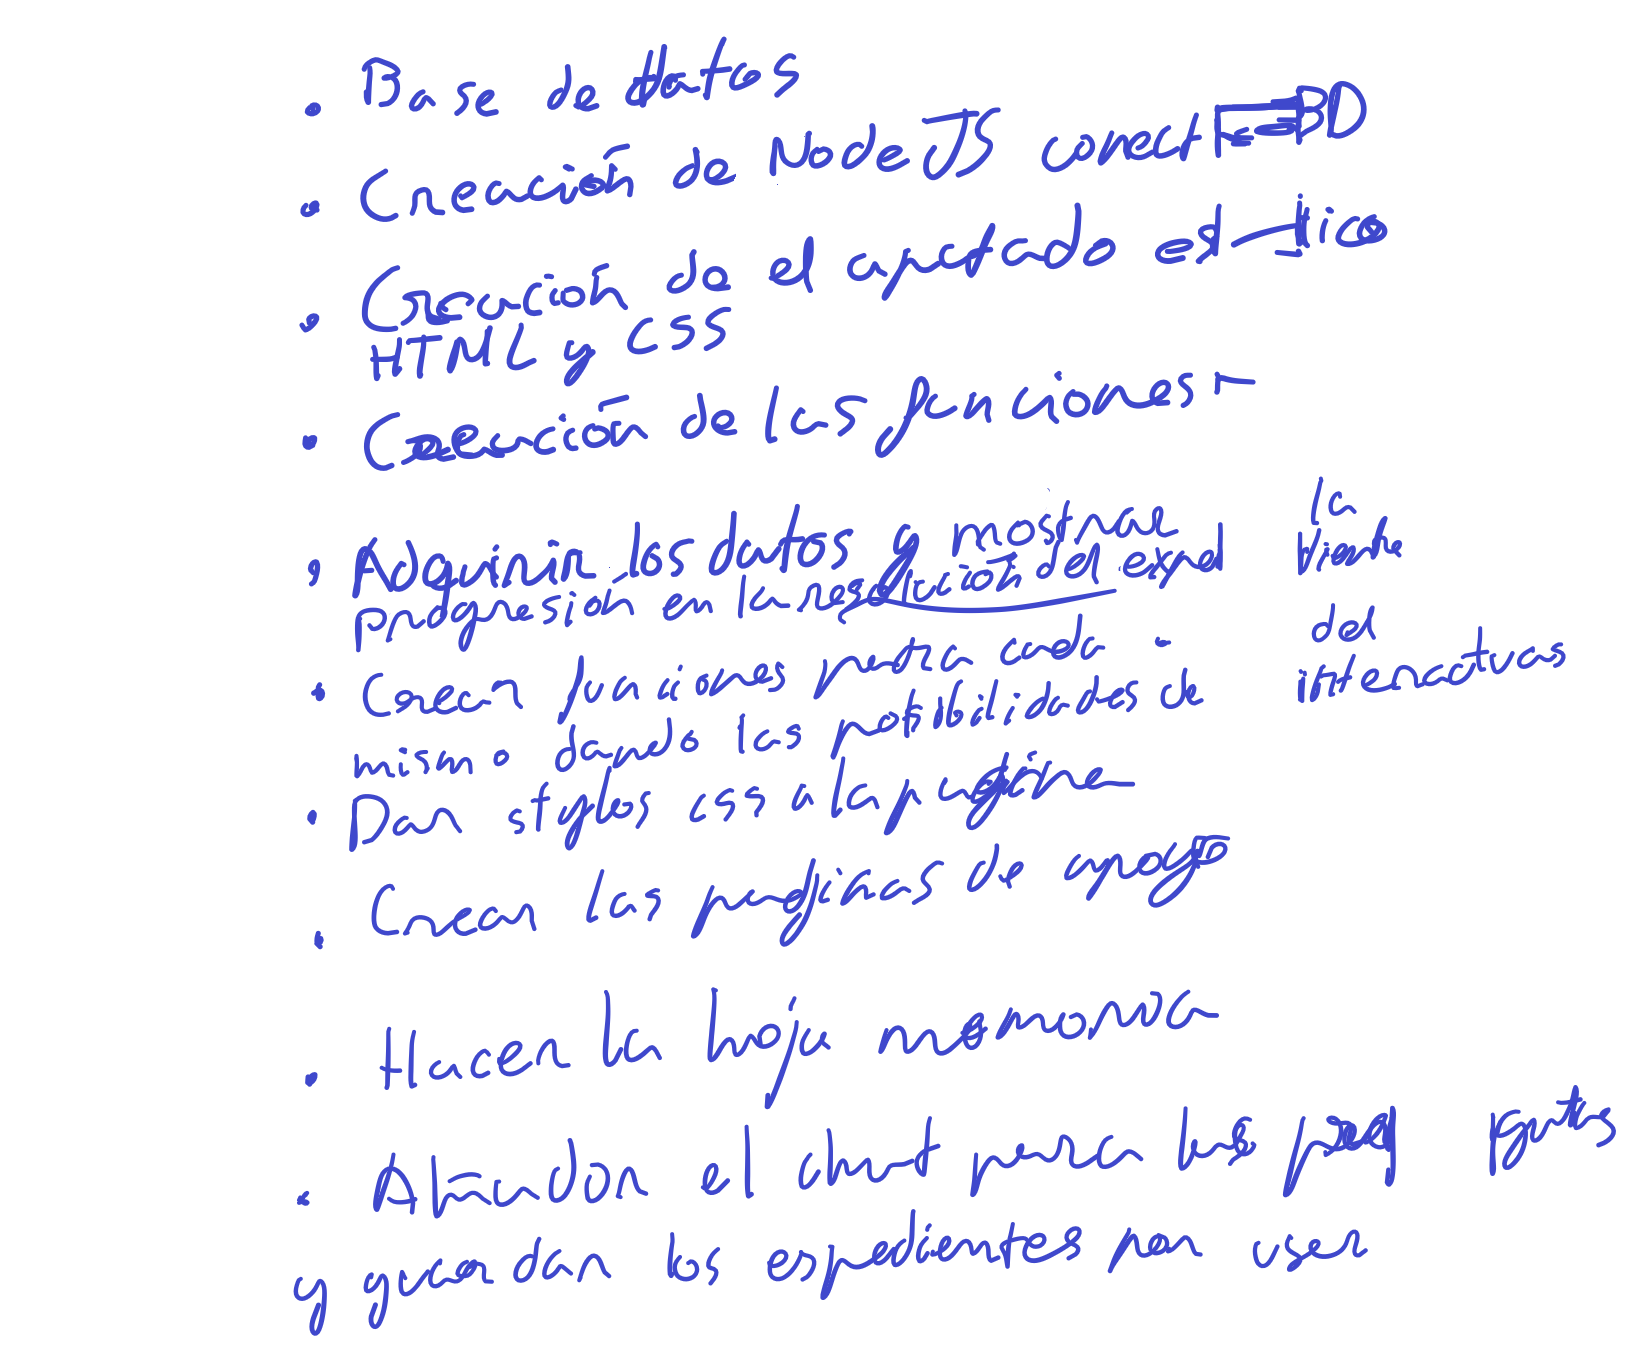 • Base de datos
• Creación de Node JS conect BD
• Creación de el apartado estático
HTML y CSS
• Creación de las funciones
• Adquirir los datos y mostrar la
progresion en la resolución del
• Crear funciones para cada del
mismo dando las posibilidades de interactivas
• Dar stylos css a la pagina
• Crear las paginas de apoyo
• Hacer la hoja memoria
• Añadir el chat para las
y guardar los expedientes por user